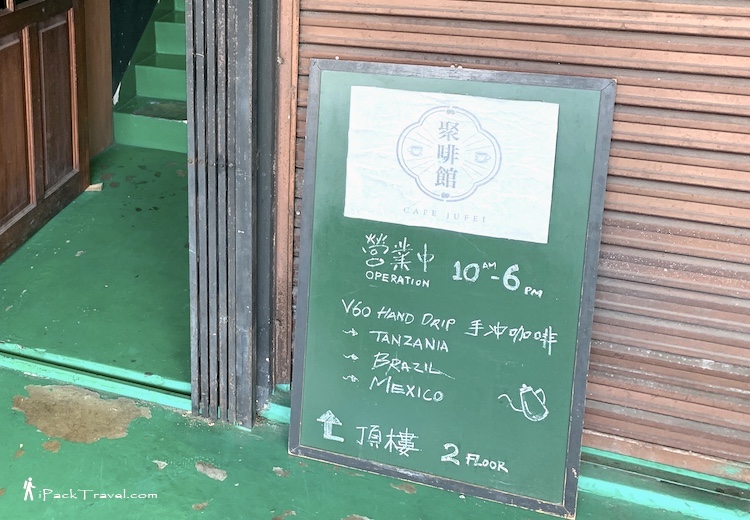 聚
啡
館
CAFE JUFEI
營業中 10 AM - 6 PM
OPERATION
V60 HAND DRIP 手冲咖啡
→ TANZANIA
→ BRAZIL
→ MEXICO
頂樓 2 FLOOR
iPackTravel.com